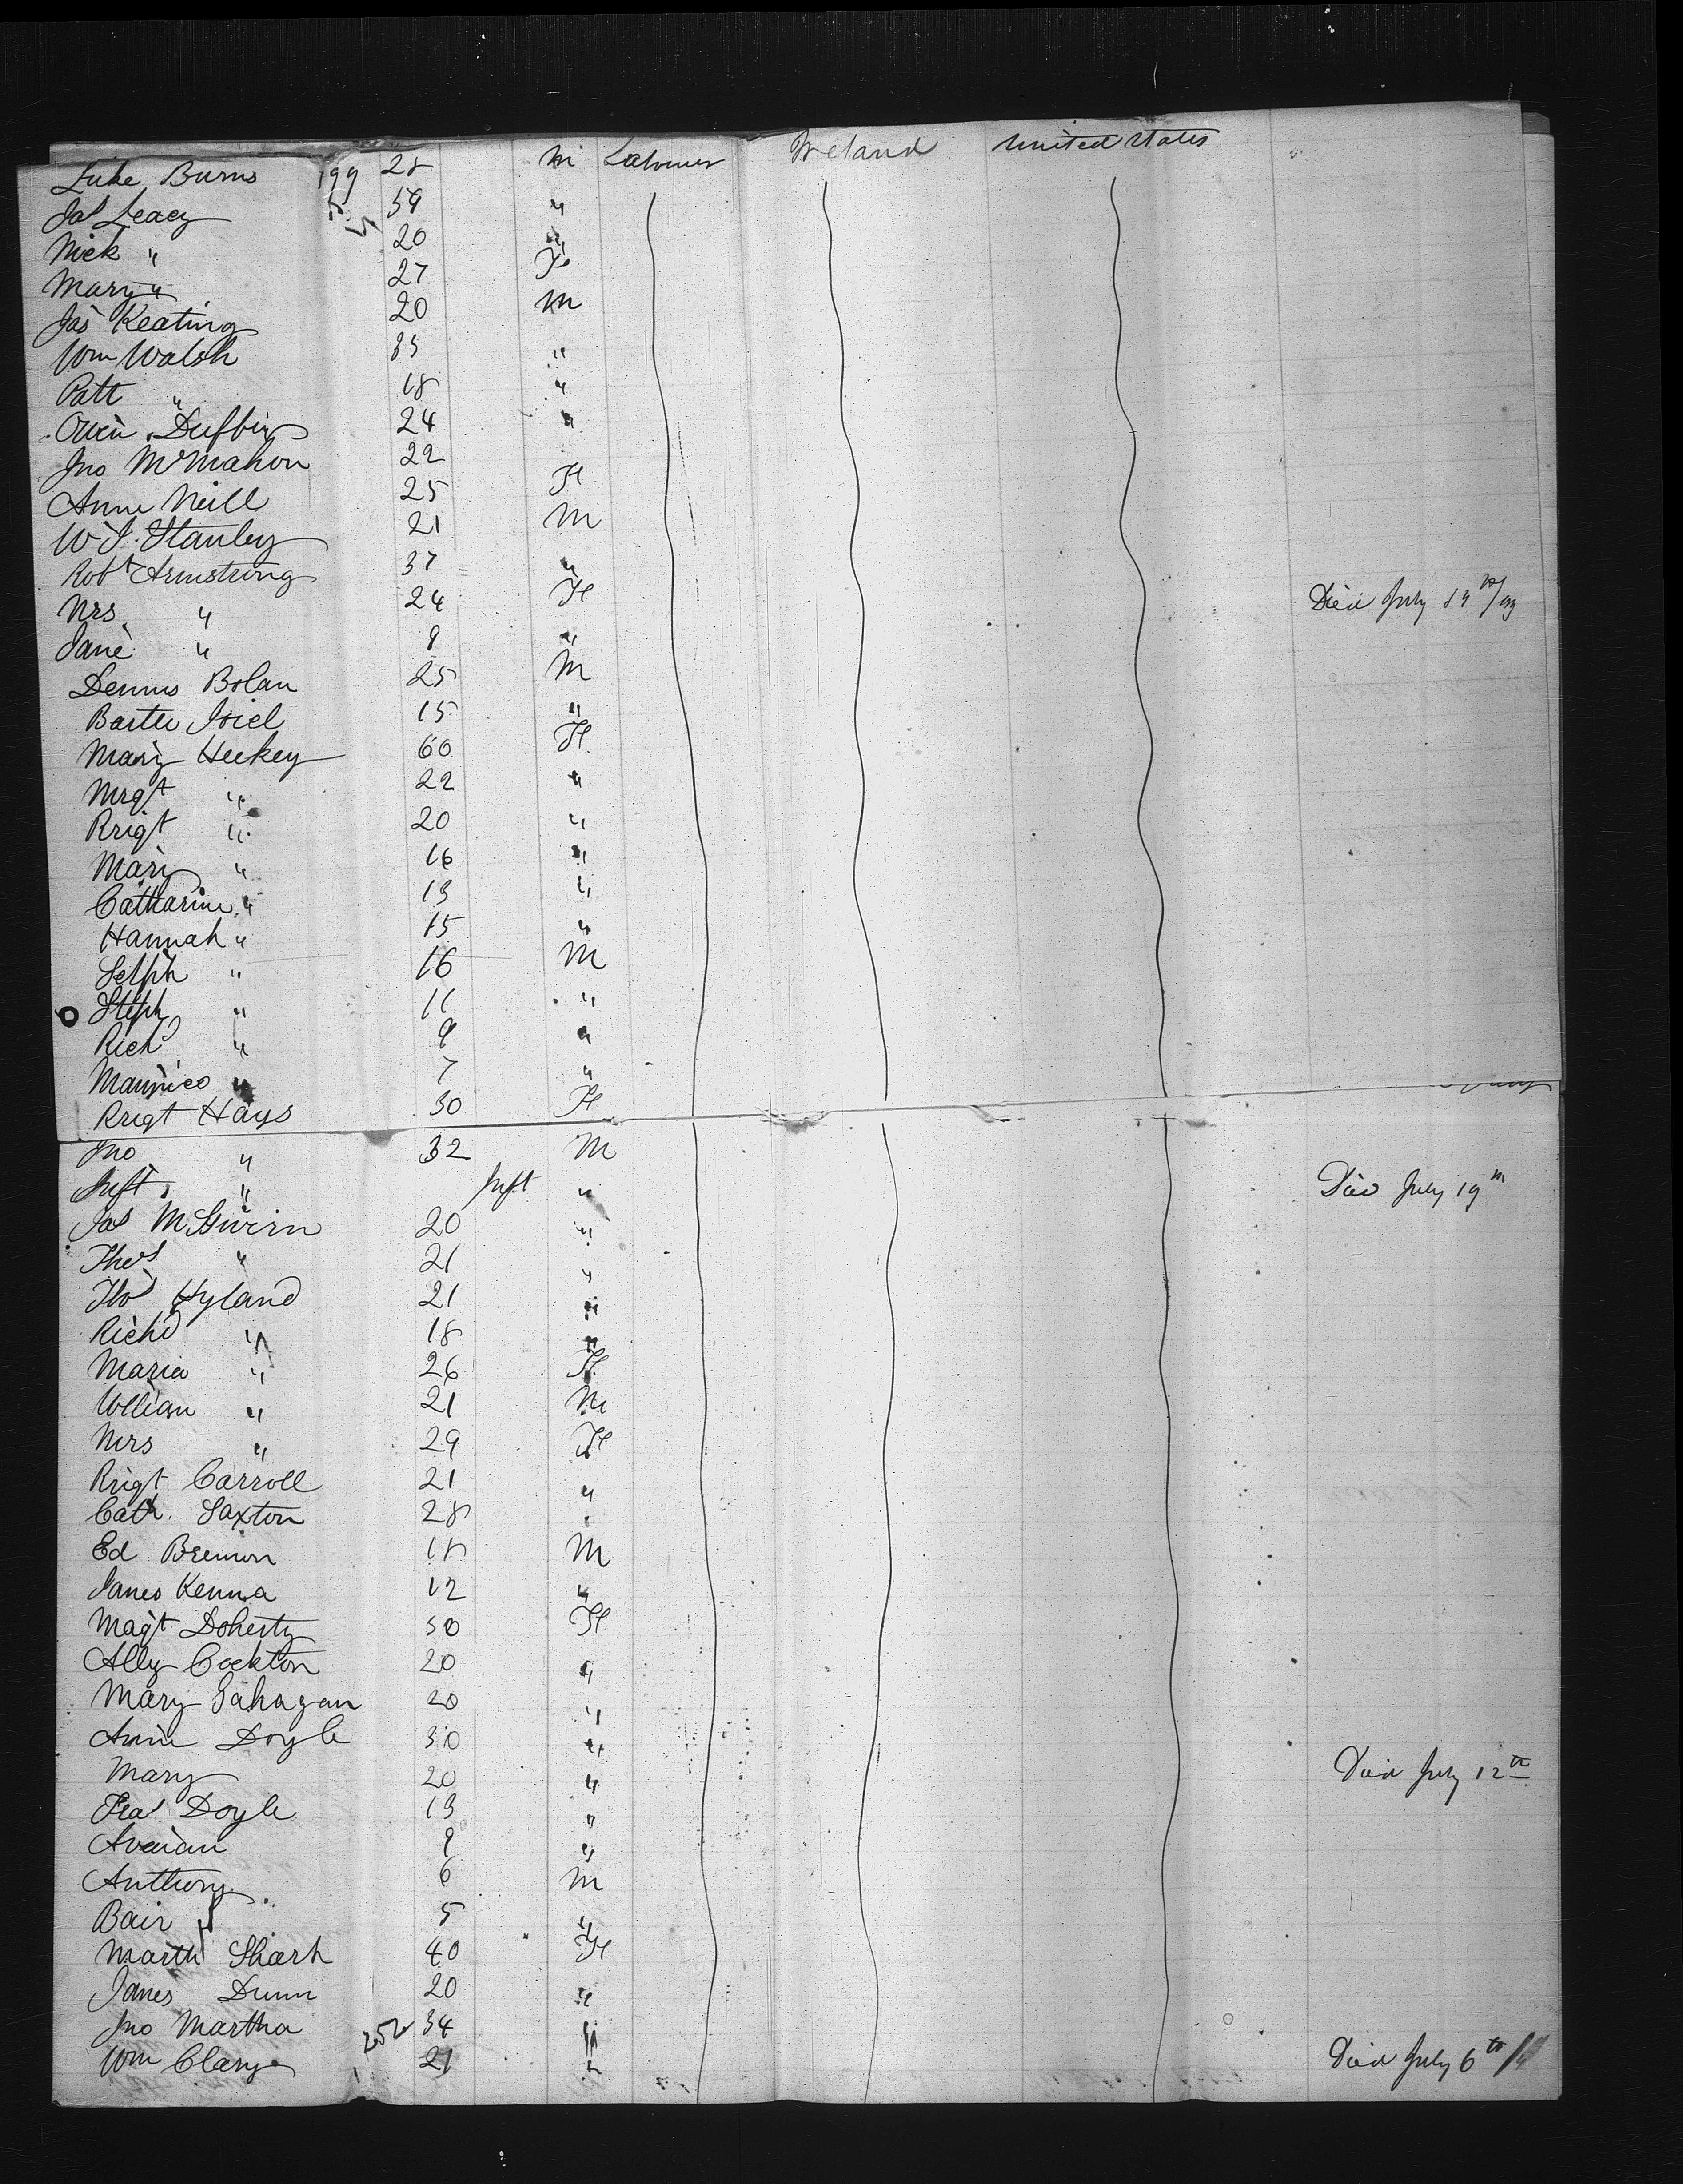 Luke Burns 199 28 M Labourer Ireland United States
Jas Leacy 54 "
Nick " 20 "
Mary " 27 F
Jas Keating 20 M
Wm Walsh 35 "
Patt " 18 "
Owen Duffin 24 "
Jno McMahon 22
Anne Neill 25 F
W J. Stanley 21 M
Robt Armstrong 37 "
Mrs " 24 F Died July
Jane " 9 "
Dennis Bolan 25 M
15 "
Mary Heekey 60 F
Mrgt " 22 "
Brigt " 20 "
Mary " 16 "
Catharine " 13 "
Hannah " 15 "
" 16 M
Steph " 11 "
Richd " 9 "
" 7 "
Brigt Hays 30 F
Jno " 32 M
Inft " Inft " Died July 19th
Jas McGuirn 20 "
Thos " 21 "
Thos Hyland 21 "
Richd " 18 "
Maria " 26 F
William " 21 M
Mrs " 29 F
Brigt Carroll 21 "
Cath. Saxton 28 "
Ed Brennon 18 M
James Kenna 12 "
Magt Doherty 50 F
Ally Cockton 20 "
Mary Gahagan 20 "
Anne Doyle 30 "
Mary 20 " Died July 12th
Fras Doyle 13 "
"
Anthony 6 M
5 "
Marth Shark 40 F
James Dunn 20 "
Jno Martha 252 34 "
Wm Clary 21 " Died July 6th